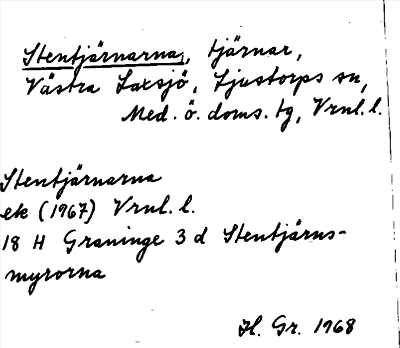 Stentjärnarna, tjärnar,
Västra Laxsjö, Ljustorps sn,
Med. ö. doms. tg, Vrnl. l.
Stentjärnarna
ek (1967) Vrnl. l.
18 H Graninge 3 d Stentjärns-
myrorna
H. Gr. 1968